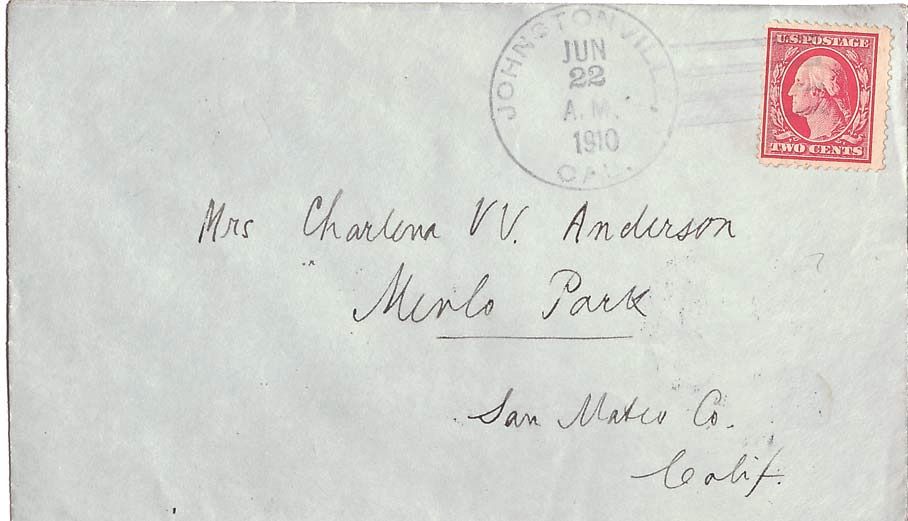 JOHNSTONVILLE
JUN
22
A.M.
1910
CAL.
U.S. POSTAGE
TWO CENTS
Mrs Charlena VV. Anderson
Menlo Park
San Mateo Co.
Calif.